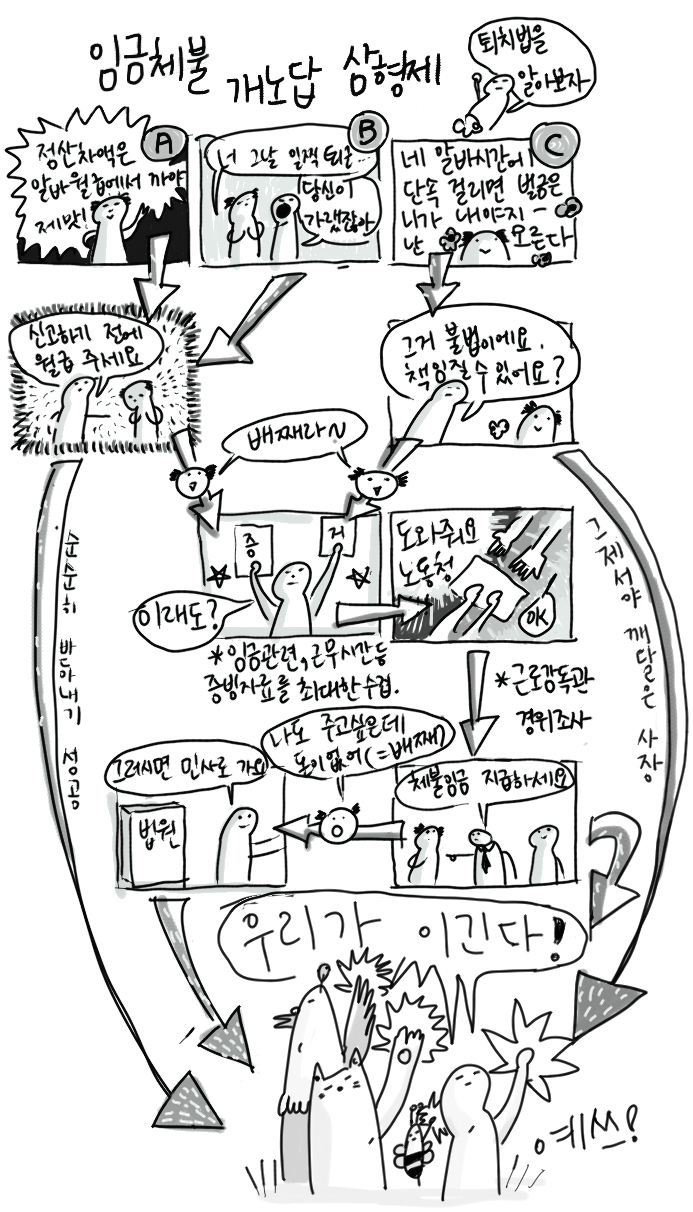 임금체불 개노답 삼형제
퇴치법을
알아보자
A
정산차액은
알바월급에서 까야
제맛!
B
너 그날 일찍 퇴근…
당신이
가랬잖아
C
네 알바시간에
단속 걸리면 벌금은
니가 내야지~
난 모른다
신고하기 전에
월급 주세요
그거 불법이에요.
책임질 수 있어요?
배째라~
증 거
이래도?
도와줘요
노동청
OK
*임금관련, 근무시간 등
증빙자료를 최대한 수집.
*근로감독관
경위조사
순순히 받아내기 성공
그제서야 깨달은 사장
체불임금 지급하세요
나도 주고싶은데
돈이 없어(=배째)
그러시면 민사로 가요
법원
우리가 이긴다!
예쓰!